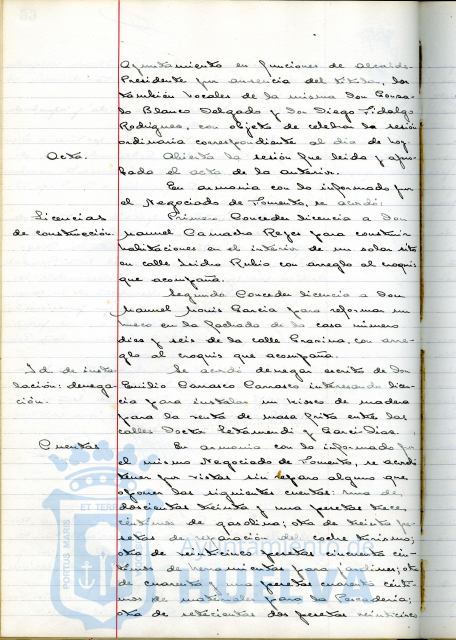 Ayuntamiento en funciones de Alcalde-
Presidente por ausencia del titular, los
también vocales de la misma Don Gonza-
lo Blanco Delgado y Don Diego Fidalgo
Rodríguez, con objeto de celebrar la sesión
ordinaria correspondiente al dia de hoy.
Acta.
Abierta la sesión fue leida y apro-
bada el acta de la anterior.
En armonia con lo informado por
el Negociado de Fomento, se acordó:
Licencias
de construcción.
Primero Conceder licencia a Don
Manuel Camacho Reyes para construir
habitaciones en el interior de un solar sito
en calle Isidro Rubio con arreglo al croquis
que acompaña.
Segundo Conceder licencia a Don
Manuel García para reformar un
hueco en la fachada de la casa número
dies y seis de la calle con arre-
glo al croquis que acompaña.
Id. de insta-
lación: denega-
ción.
Se acordó denegar escrito de Don
Emilio Carrasco Carrasco interesando licen-
cia para instalar un kiosco de madera
para la venta de masa frita entre las
calles Doctor Letamendi y Garci-Díaz.
Cuentas
En armonia con lo informado por
el mismo Negociado de Fomento, se acordó
tener por vistas sin reparo alguno que
oponer las siguientes cuentas: una de
doscientas treinta y una pesetas trece
céntimos de gasolina; otra de treinta pe-
setas de reparación del coche turismo;
otra de veinticinco pesetas cuarenta cén-
timos de herramientas para jardines; otra
de cuarenta y una pesetas cuarenta cénti-
mos de materiales para la Pescadería;
otra de setecientas dos pesetas veinticinco
PORTUS MARIS
ET TERRÆ
Ayuntamiento de
HUELVA